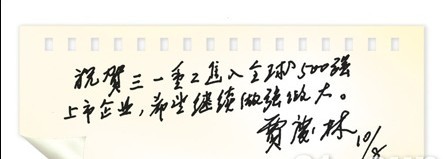 祝贺三一重工进入全球500强
上市企业，希望继续做强做大。
贾庆林 10/8